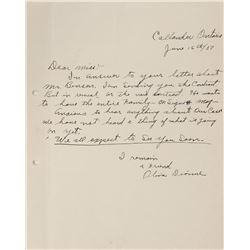 Callander Ontario
June 15th/37
Dear Miss:-
In answer to your letter about
Mr. Benson. I am sending you the Contract
But in
to have the entire family
anxious to hear anything about our Case
We have not heard a thing of what is going
on yet.
We all expect to See you Soon.
I remain
a friend
Oliva Dionne